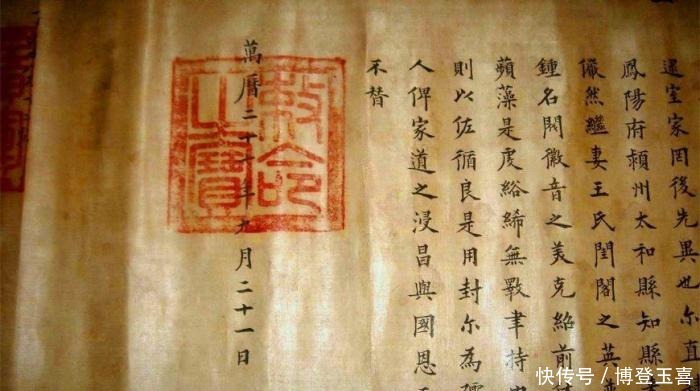 室家罔後先異也尔直
鳳陽府潁州太和縣知縣
儼然繼妻王氏閨閤之英
鍾名閥徽音之美克紹前
蘋藻是虔綌絺無斁聿持
則以佐循良是用封尔為孺
人俾家道之浸昌與國恩
不替
萬曆二十年九月二十一日
敕命之寶
快传号／博登玉喜